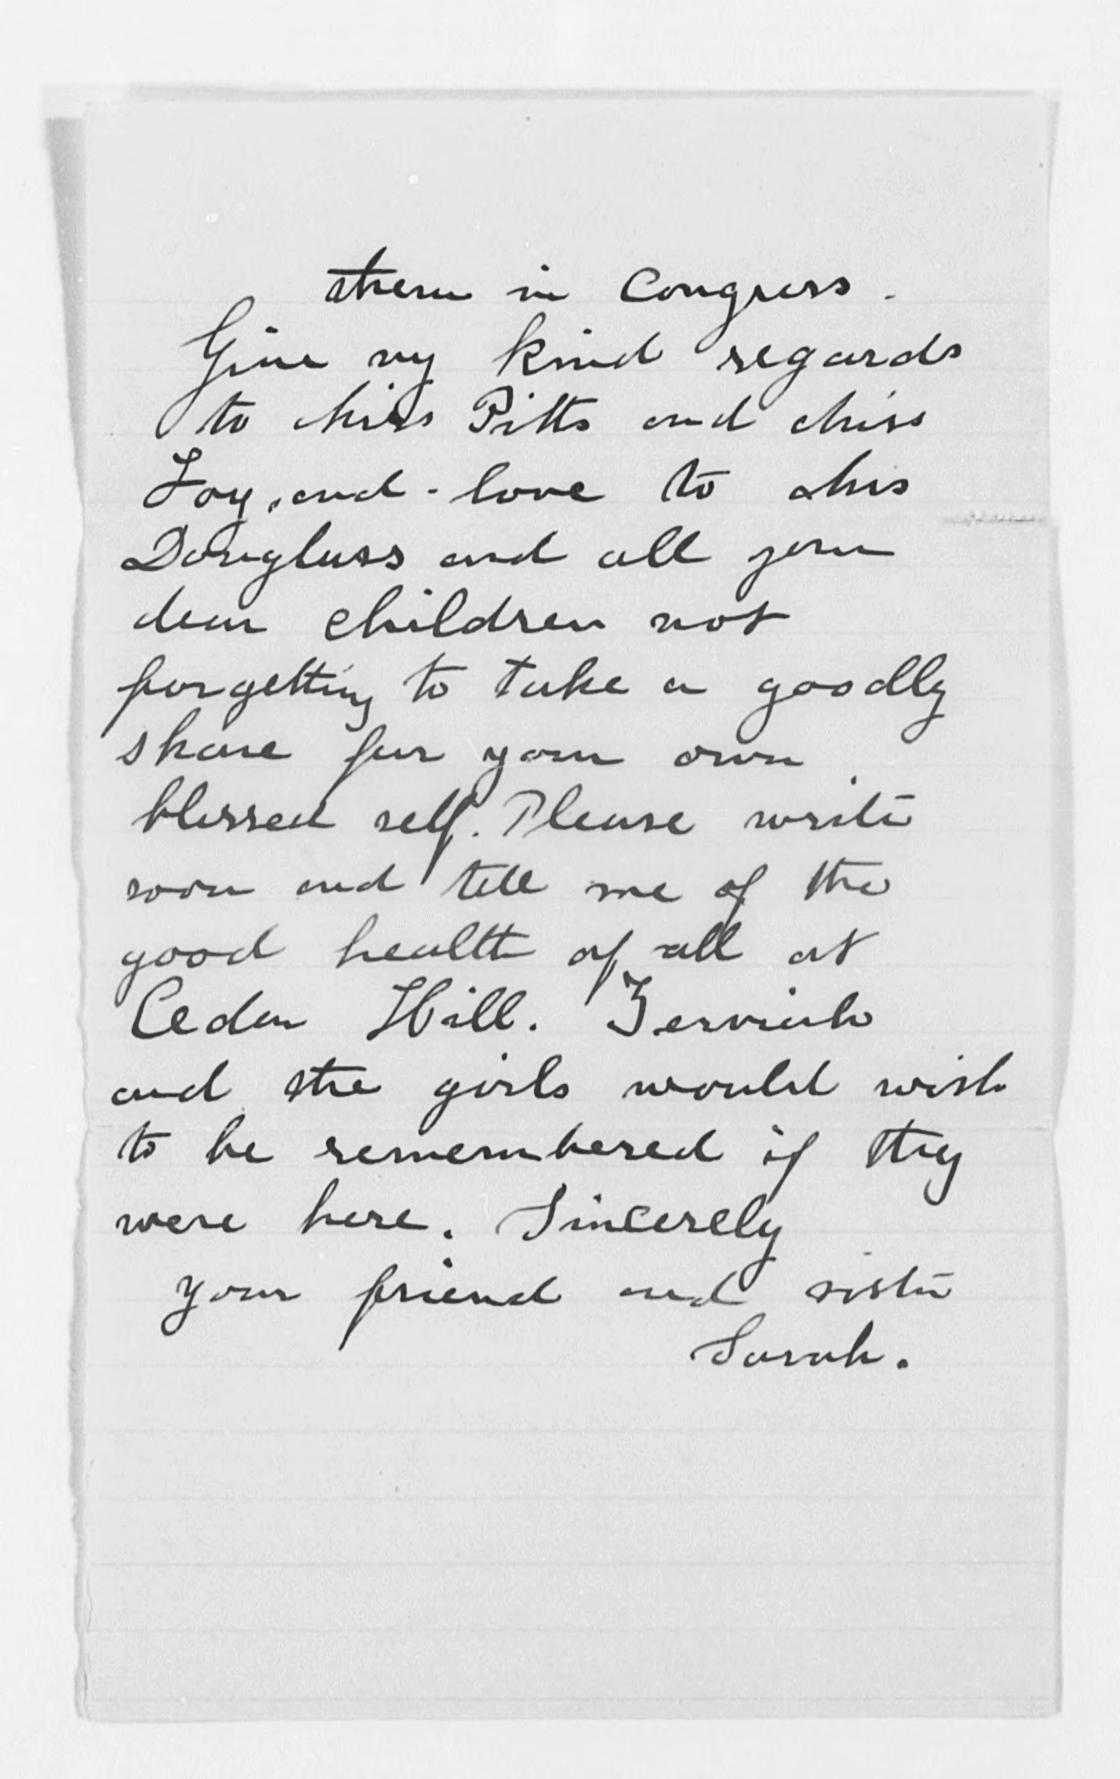 them in Congress.
Give my kind regards
to Miss Pitts and Miss
Foy, and love to Mrs
Douglass and all your
dear children not
forgetting to take a goodly
share for your own
blessed self. Please write
soon and tell me of the
good health of all at
Cedar Hill. Zerviah
and the girls would wish
to be remembered if they
were here. Sincerely
your friend and sister
Sarah.